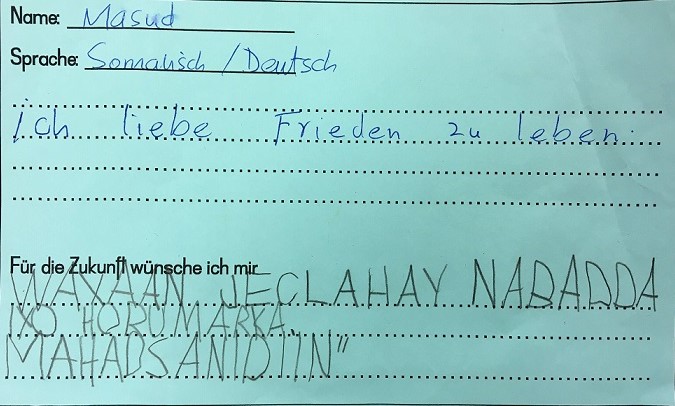 Name: Masud
Sprache: Somalisch / Deutsch
ich liebe Frieden zu leben.
Für die Zukunft wünsche ich mir
WAXAAN JECLAHAY NABADDA
IXO HORUMARKA
MAHADSANIDIIN"